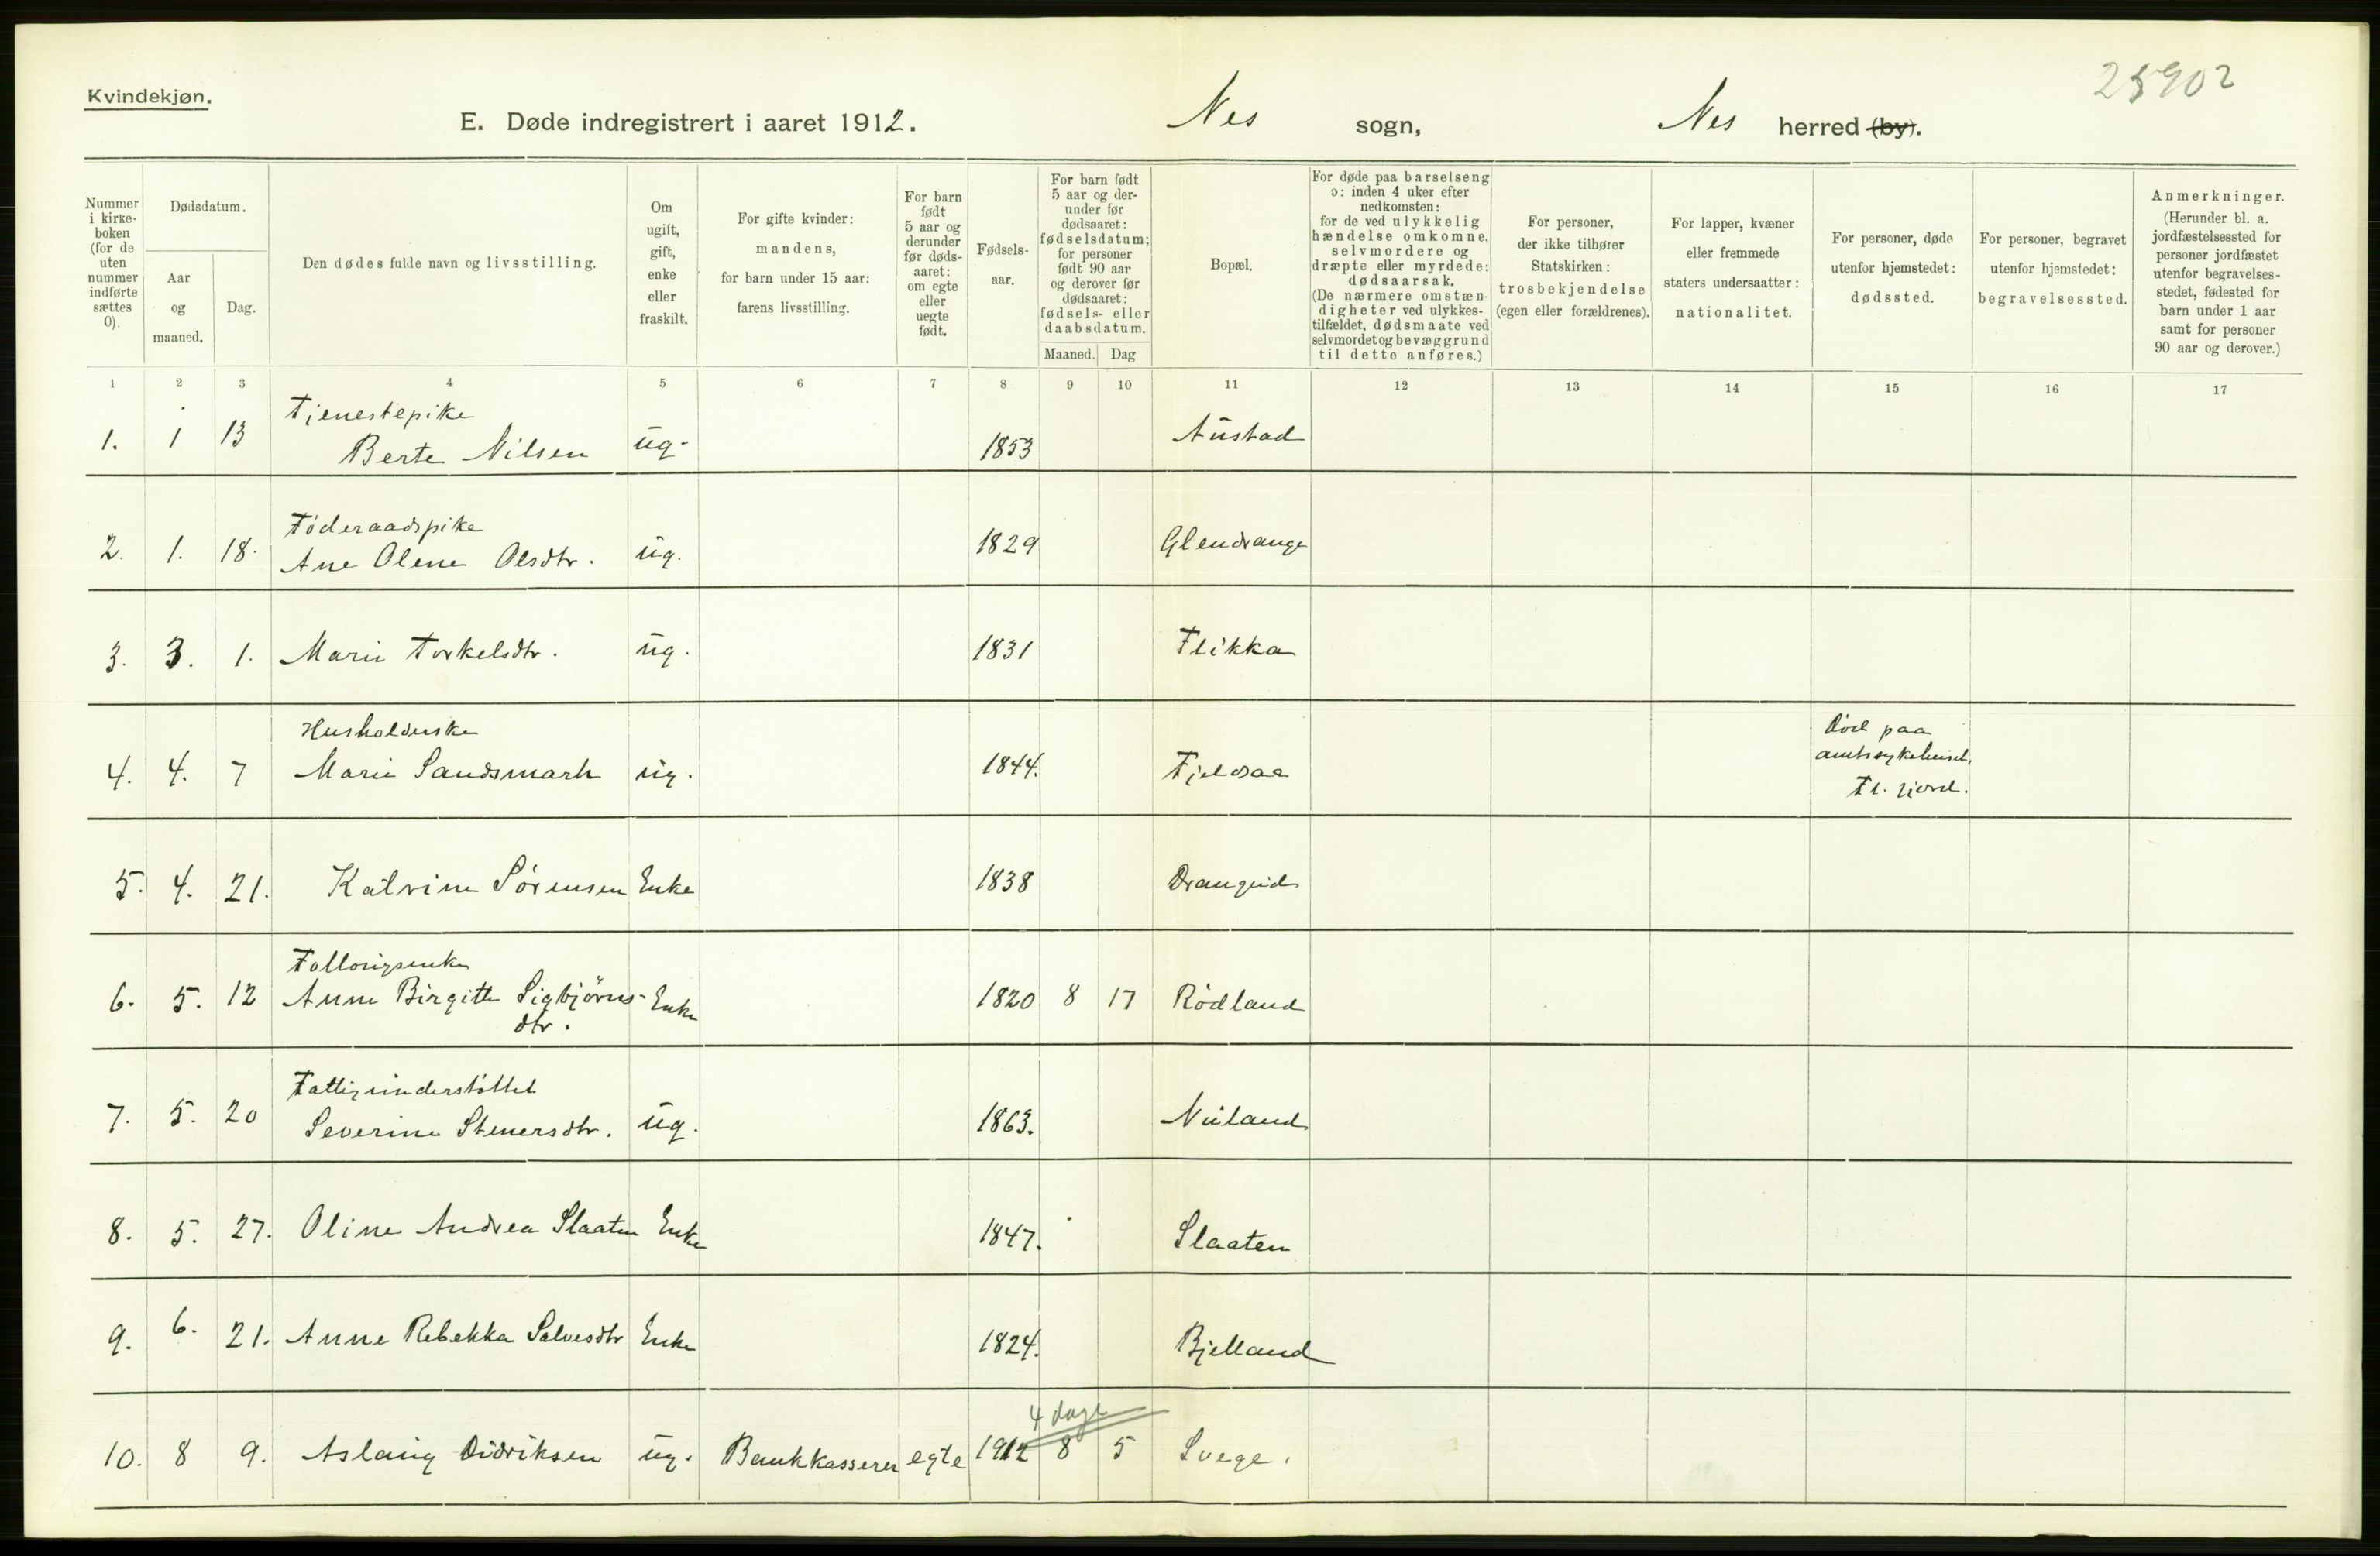 Kvindekjøn.
25902
E. Døde indregistrert i aaret 1912. Nes sogn, Nes herred (by).
Nummer i kirke-boken (for de uten nummer indførte sættes 0).
Dødsdatum.
Aar og maaned.
Dag.
Den dødes fulde navn og livsstilling.
Om ugift, gift, enke eller fraskilt.
For gifte kvinder: mandens, for barn under 15 aar: farens livsstilling.
For barn født 5 aar og derunder før døds-aaret: om egte eller uegte født.
Fødsels-aar.
For barn født 5 aar og der-under før dødsaaret: fødselsdatum; for personer født 90 aar og derover før dødsaaret: fødsels- eller daabsdatum.
Maaned. Dag
Bopæl.
For døde paa barselseng ɔ: inden 4 uker efter nedkomsten: for de ved ulykkelig hændelse omkomne, selvmordere og dræpte eller myrdede: dødsaarsak. (De nærmere omstæn-digheter ved ulykkes-tilfældet, dødsmaate ved selvmordet og bevæggrund til dette anføres.)
For personer, der ikke tilhører Statskirken: trosbekjendelse (egen eller forældrenes).
For lapper, kvæner eller fremmede staters undersaatter: nationalitet.
For personer, døde utenfor hjemstedet: dødssted.
For personer, begravet utenfor hjemstedet: begravelsessted.
Anmerkninger. (Herunder bl. a. jordfæstelsessted for personer jordfæstet utenfor begravelses-stedet, fødested for barn under 1 aar samt for personer 90 aar og derover.)
1 2 3 4 5 6 7 8 9 10 11 12 13 14 15 16 17
Tjenestepike
1. 1 13 Berte Nilsen ug. 1853 Austad
Föderaadspike
2. 1. 18. Ane Olene Olsdtr. ug. 1829 Glendrange
3. 3. 1. Marie Torkelsdtr. ug. 1831 Flikka
Husholderske
4. 4. 7 Marie Sandsmark ug. 1844. Fjeldsaa
Död paa
amtssykehuset,
Fl. fjord.
5. 4. 21. Katrine Sörensen Enke 1838 Drangeid
6. 5. 12 Anne Birgitte Sigbjörns- Enke 1820 8 17 Rödland
dtr.
Fattigunderstöttet
7. 5. 20 Severine Stenersdtr. ug. 1863. Nuland
8. 5. 27. Oline Andrea Slaaten Enke 1847. Slaaten
9. 6. 21. Anne Rebekka Salvesdtr Enke 1824. Bjelland
4 dage
10. 8 9. Aslaug Didriksen ug. Bankkasserer egte 1912 8 5 Svege.